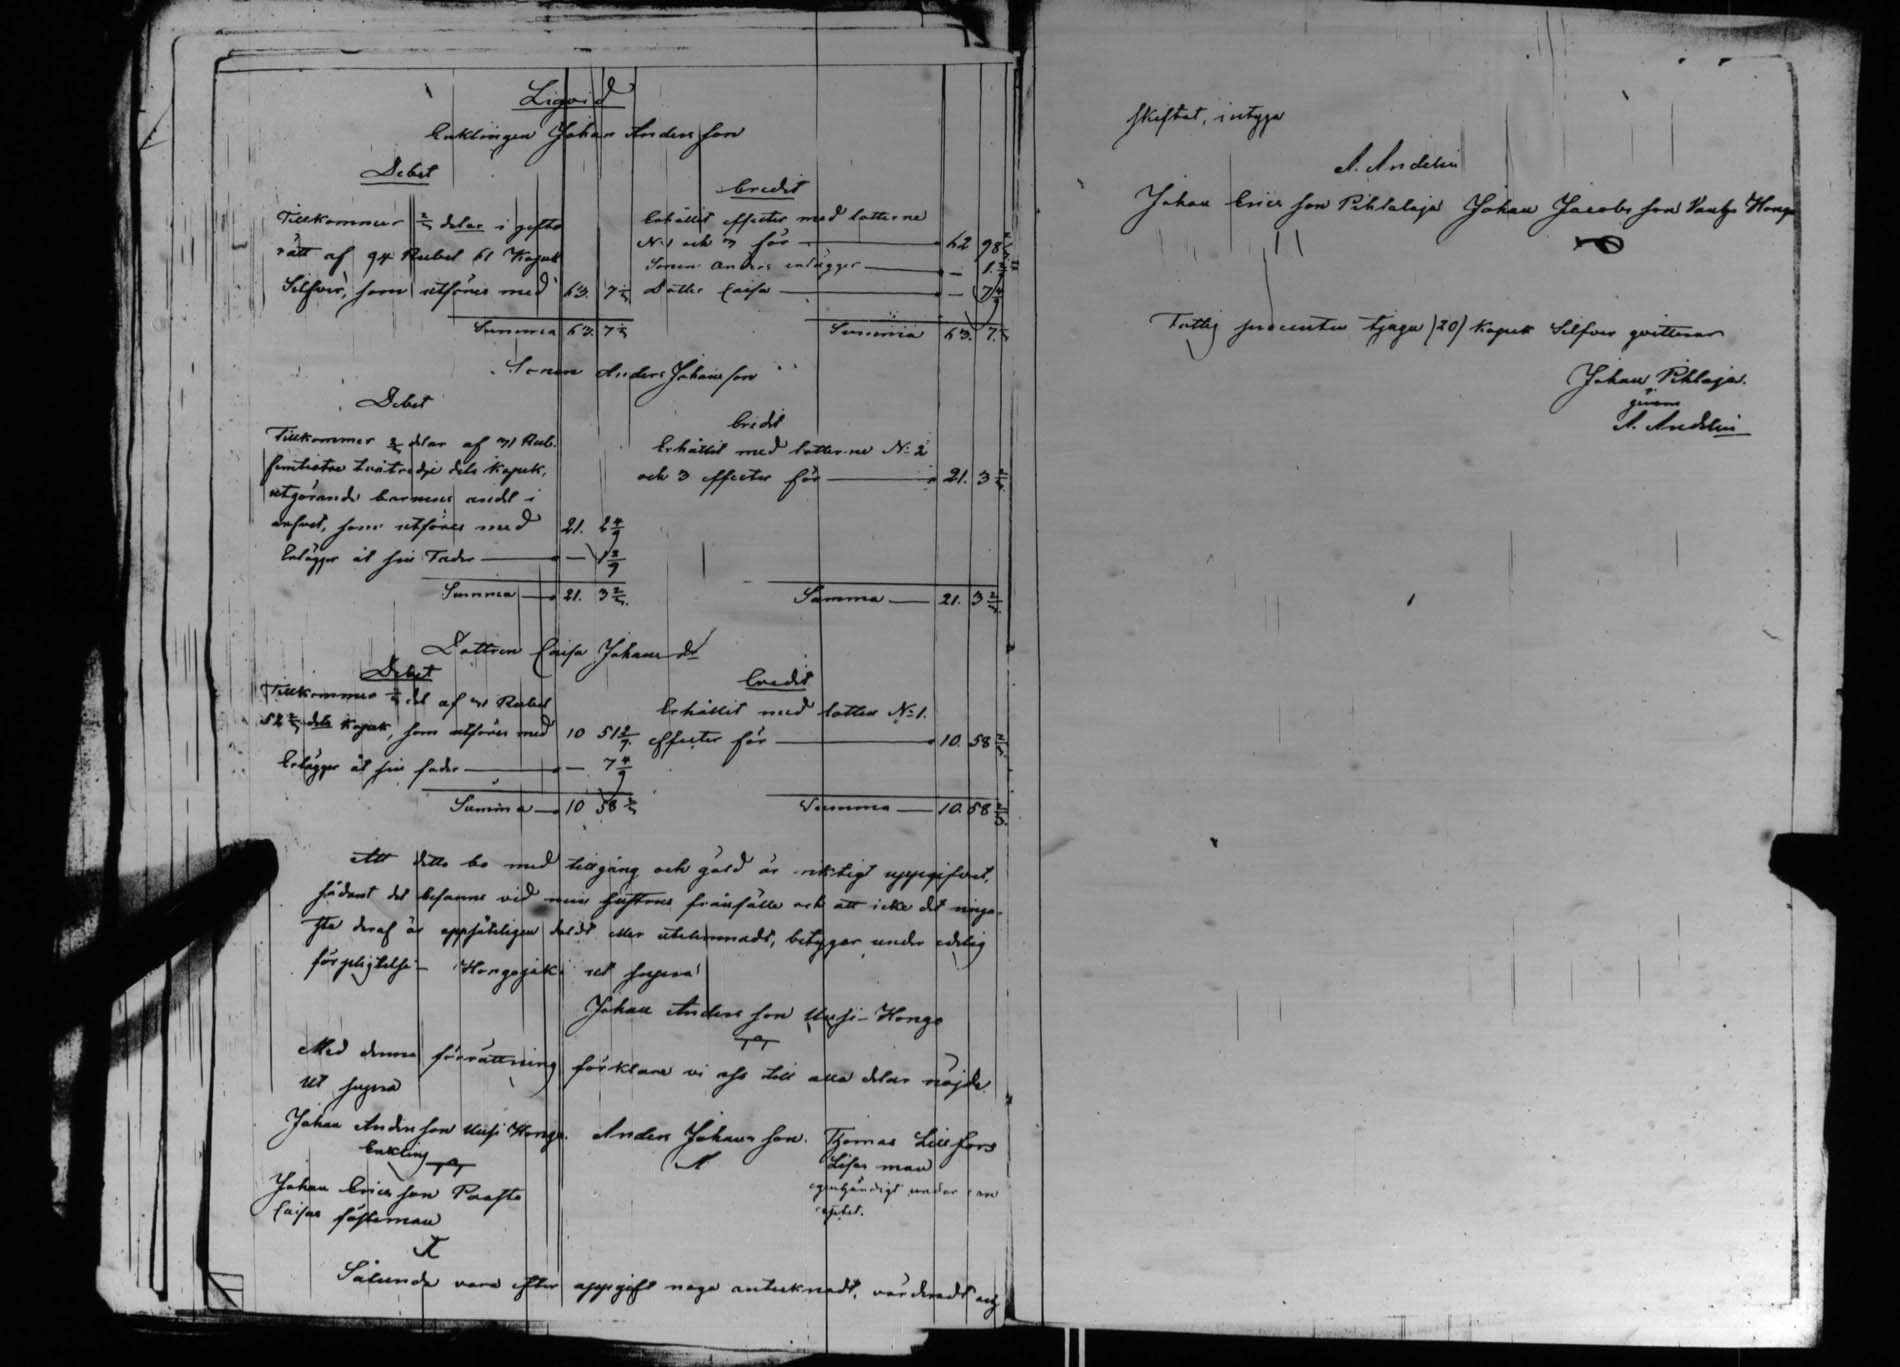 Liqvid
Enklingen Johan Andersson
Debet
Tillkommer 2/3 delar i gifto
rätt af 94 Rubel 61 Kopek
Silfver, som utföres med 63. 7 1/3
Summa 63. 7 1/3
Credit
Erhållit effecter med lotterne
No 1 och 3 för 62 98 2/3
Sonen Anders erlägger — 1 2/9
Dotter Caisa — 7 4/9
Summa 63. 7 1/3
Sonen Anders Johansson
Debet
Tillkommer delar af 31 Rub.
femtiotvå tvåtredje dels Kopek,
utgörande barnens andel i
arfvet, som utföres med 21. 2 4/9
Erlägger åt sin Fader — 1 2/9
Summa 21. 3 2/3
Credit
Erhållit med lotterne No 2
och 3 effecter för 21. 3 2/3
Summa 21. 3 2/3
Dottren Caisa Johansdr
Debet
Tillkommer 1/3 del af 31 Rubel
52 2/3 dels Kopek, som utföres med 10 51 2/9
Erlägger åt sin fader — 7 4/9
Summa 10 58 2/3
Credit
Erhållit med lotten No 1.
effecter för 10. 58 2/3
Summa 10. 58 2/3
Att detta bo med tillgång och gäld är riktigt uppgifvet,
sådant det befanns vid min hustrus frånfälle och att icke det ringa-
ste deraf är uppsåteligen doldt eller utelemnadt, betygar under edelig
förpligtelse Hongojoki ut supra
Johan Andersson Uusi-Hongo
Med denna förrättning förklare vi oss till alla delar nöjda
ut supra
Johan Andersson Uusi Hongo. Anders Johansson. Thomas Lillfors
Enkling Lisas man
egenhändigt under
Johan Ericsson Paasto
Caisas fästeman
Sålunda vara efter uppgift noga antecknadt, värderadt och
skiftat, intyga
A. Andelin
Johan Ericsson Pihlalaja Johan Jacobsson Vanha Hongo
Fattig procenten tjugu (20) Kopek Silfver qvitterar
Johan Pihlaja.
genom
A. Andelin